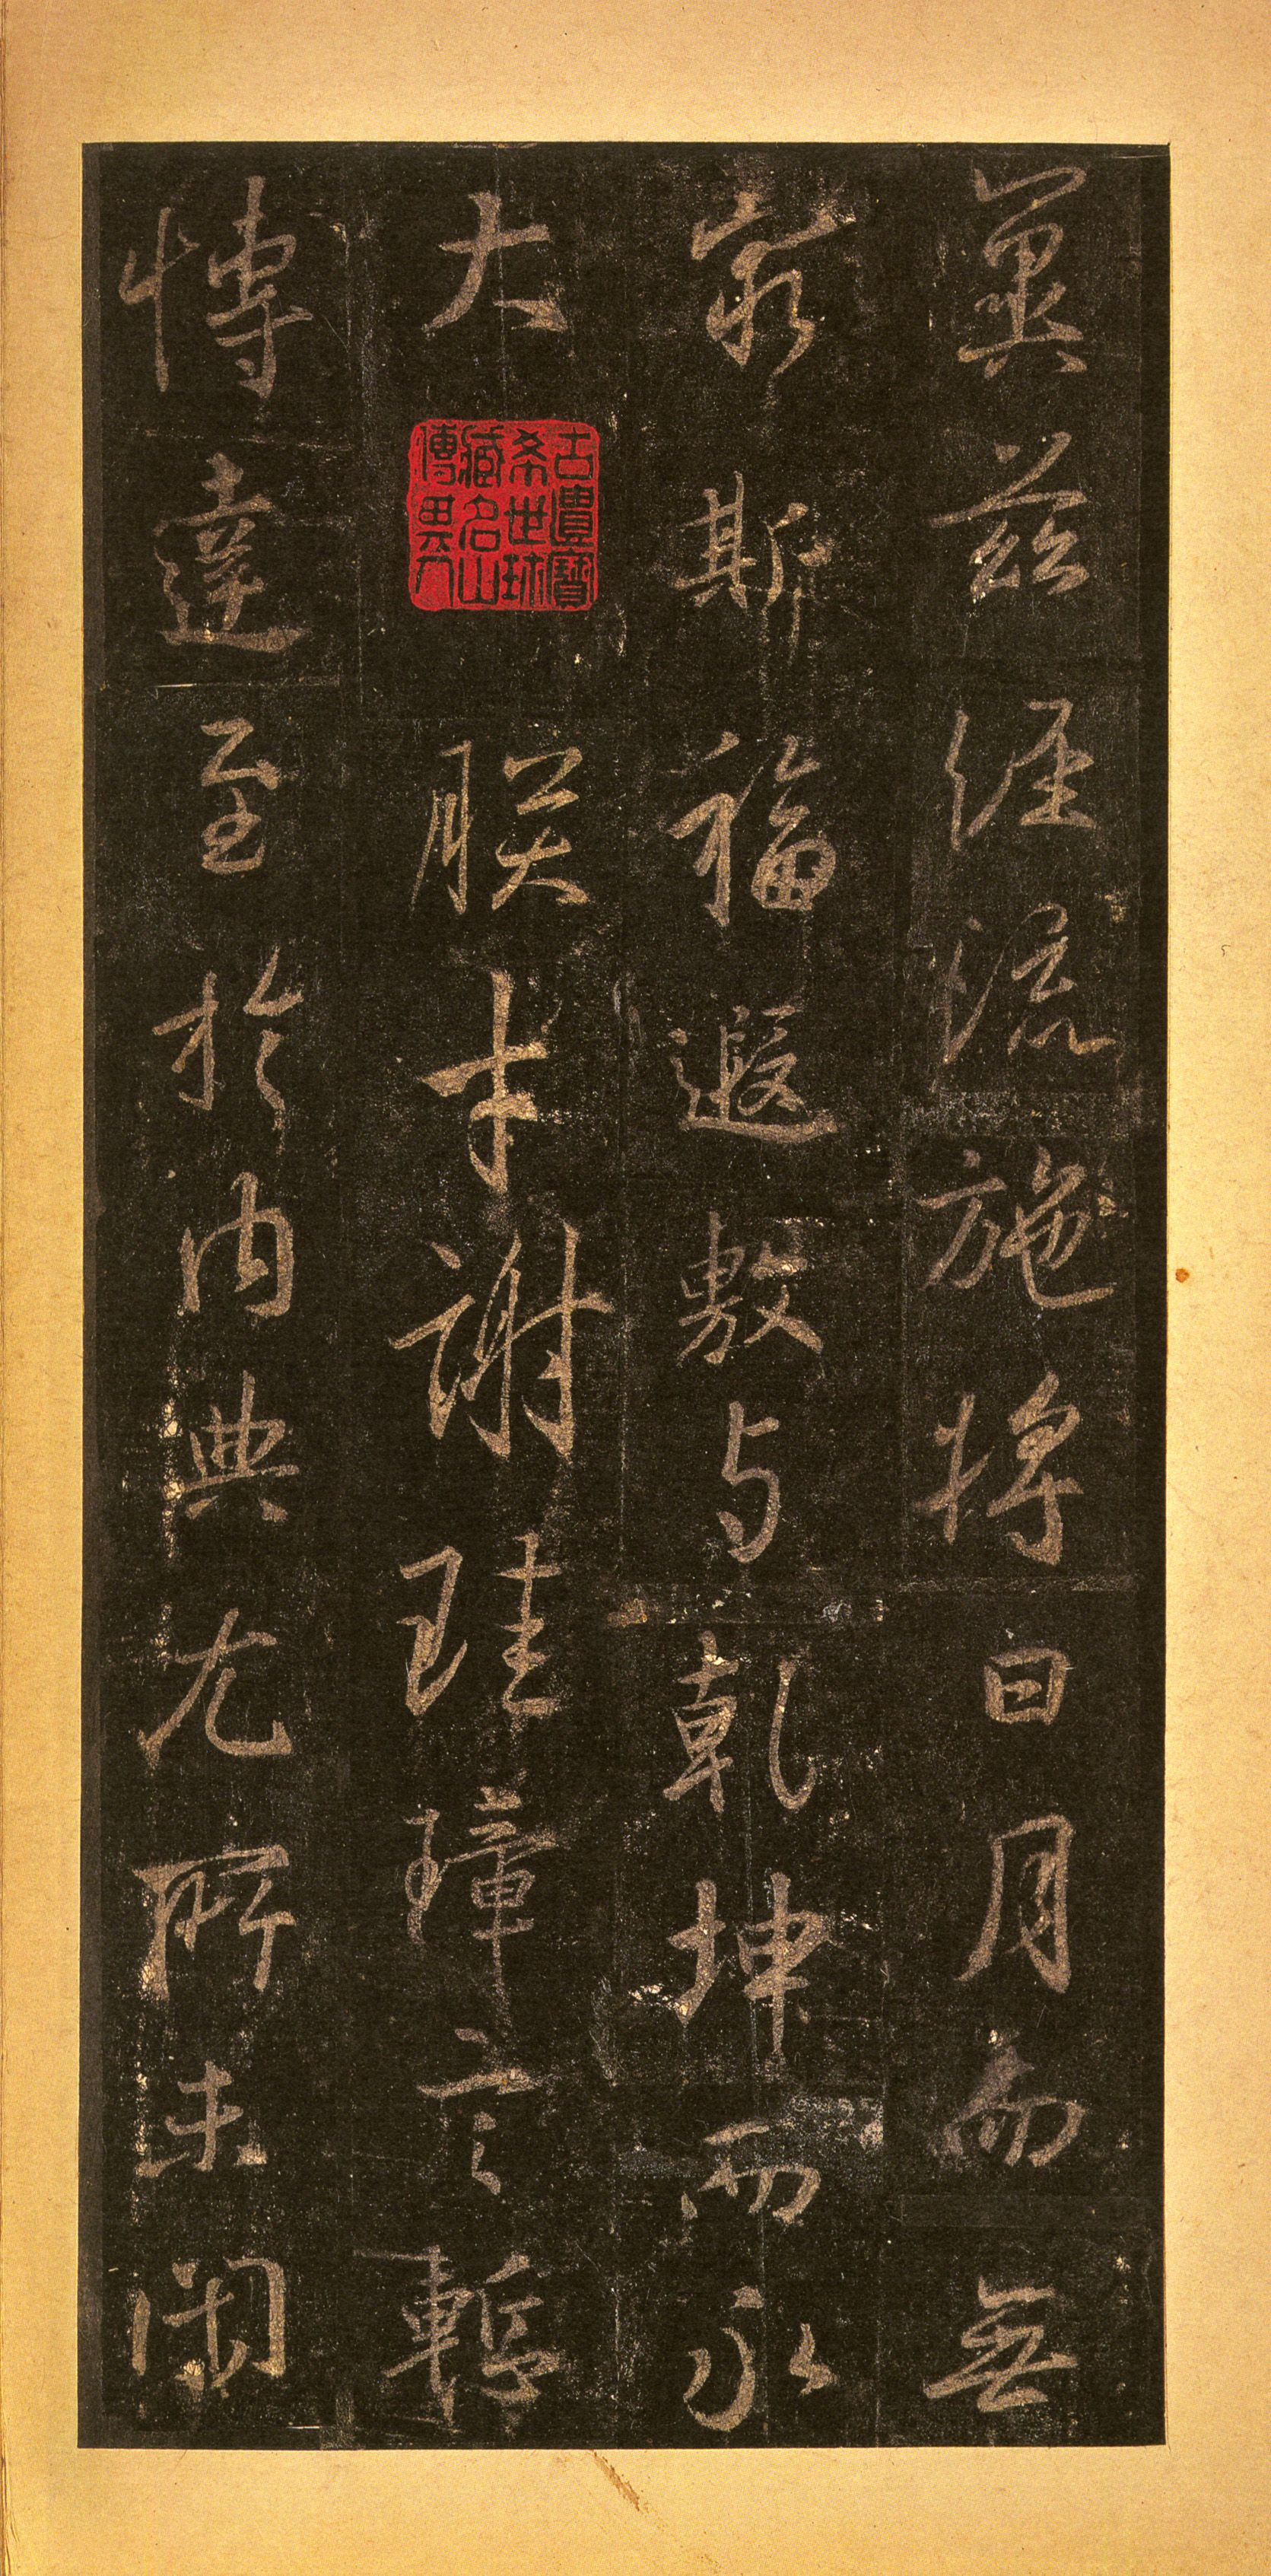 冀茲經流施将日月而無
窮斯福遐敷与乾坤而永
大
朕才謝珪璋言慙
博達至於内典尤所未閑
古遺寶
希世珎
藏名山
傳異人